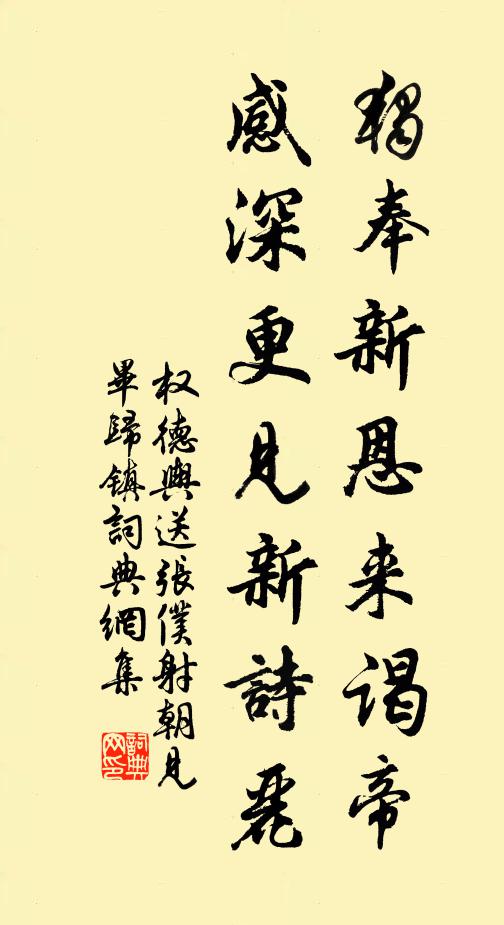 獨奉新恩来谒帝
感深更见新詩麗
权德輿送張僕射朝见
畢歸镇詞典網集
詞典
网印